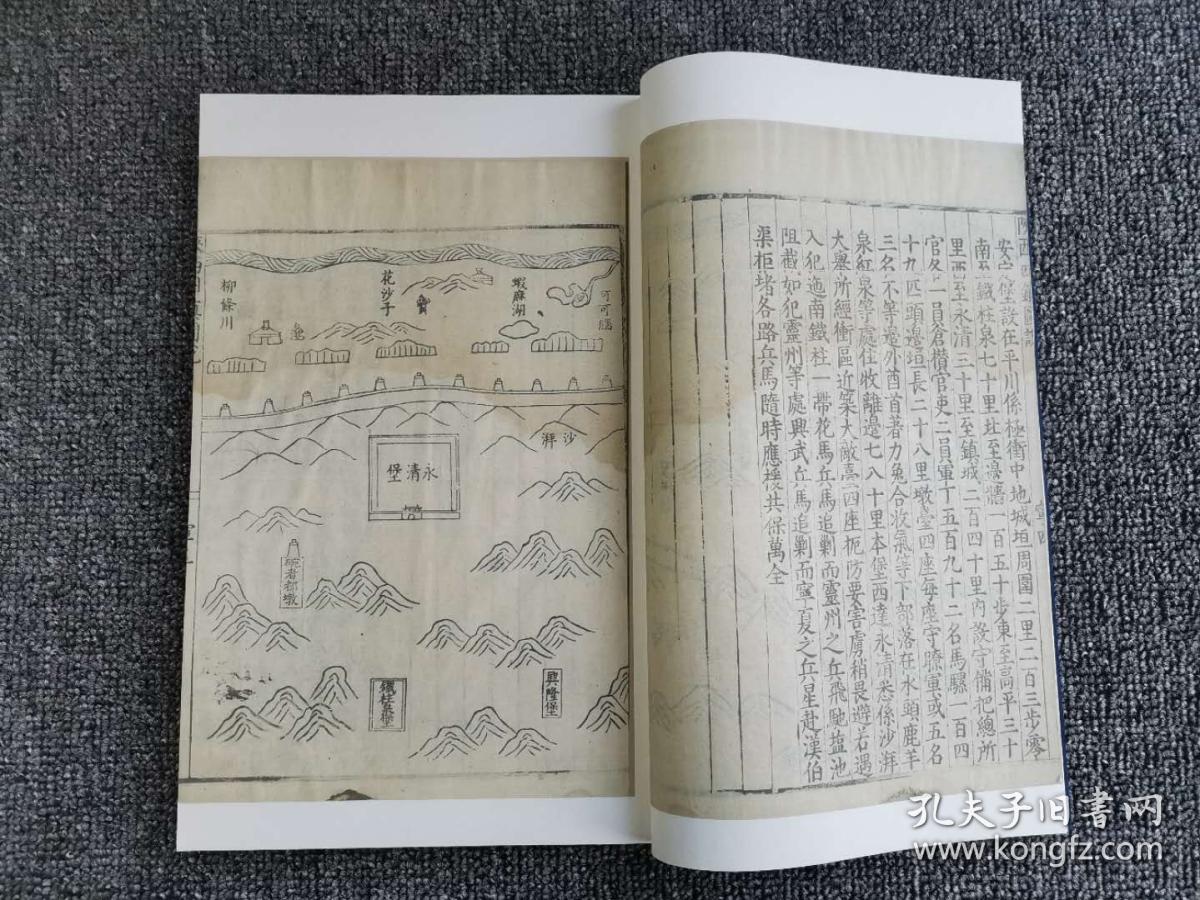 安定堡設在平川係極衝中地城垣周圍二里二百三步零
南至鐵柱泉七十里北至邊牆一百五十步東至高平三十
里西至永清三十里至鎮城二百四十里內設守備把總所
官各一員倉攢官吏二員軍丁五百九十二名馬騾一百四
十九匹頭邊垣長二十八里墩臺四座每座守瞭軍或五名
三名不等邊外酋首著力兔合收氣等下部落在水頭鹿羊
泉紅泉等處住牧離邊七八十里本堡西達永清悉係沙湃
大舉所經衝區近築大敵臺四座扼防要害虜稍畏避若遇
入犯迤南鐵柱一帶花馬兵馬追剿而靈州之兵飛馳塩池
阻截如犯靈州等處興武兵馬追剿而寧夏之兵星赴漢伯
渠柜堵各路兵馬隨時應援共保萬全
可可腦
蝦麻湖
花沙子
柳條川
沙湃
永清堡
鐵柱泉堡
興隆堡
孔夫子旧书网
www.kongfz.com